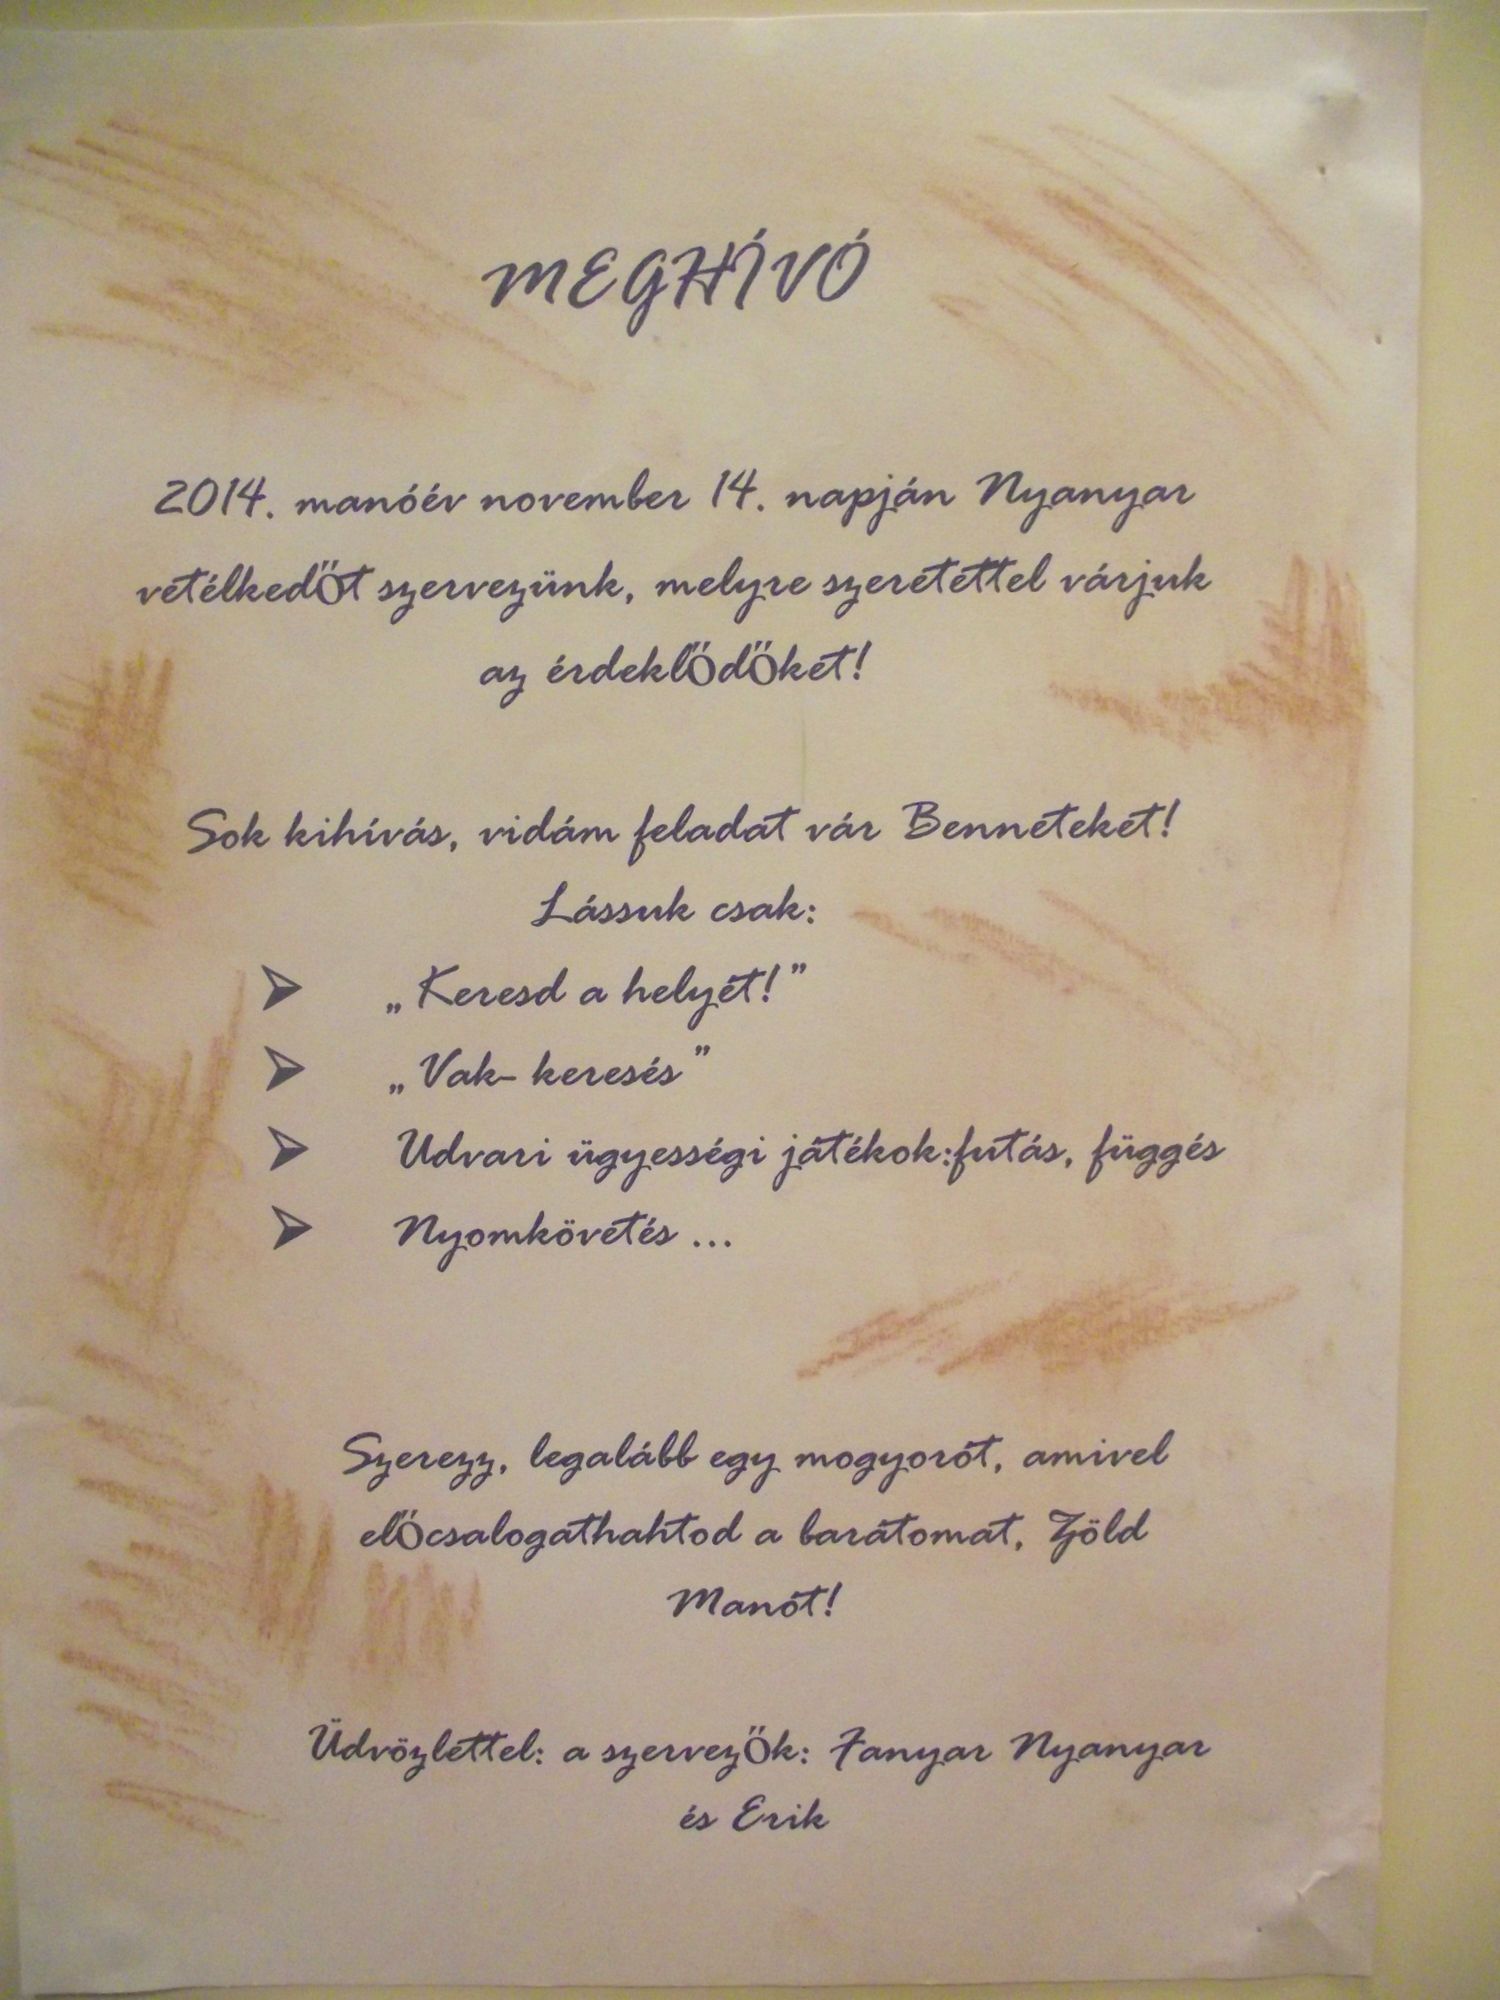 MEGHÍVÓ
2014. manóév november 14. napján Nyanyar
vetélkedőt szervezünk, melyre szeretettel várjuk
az érdeklődőket!
Sok kihívás, vidám feladat vár Benneteket!
Lássuk csak:
➢ „Keresd a helyét!”
➢ „Vak- keresés”
➢ Udvari ügyességi játékok:futás, függés
➢ Nyomkövetés ...
Szerezz, legalább egy mogyorót, amivel
előcsalogathahtod a barátomat, Zöld
Manót!
Üdvözlettel: a szervezők: Fanyar Nyanyar
és Erik